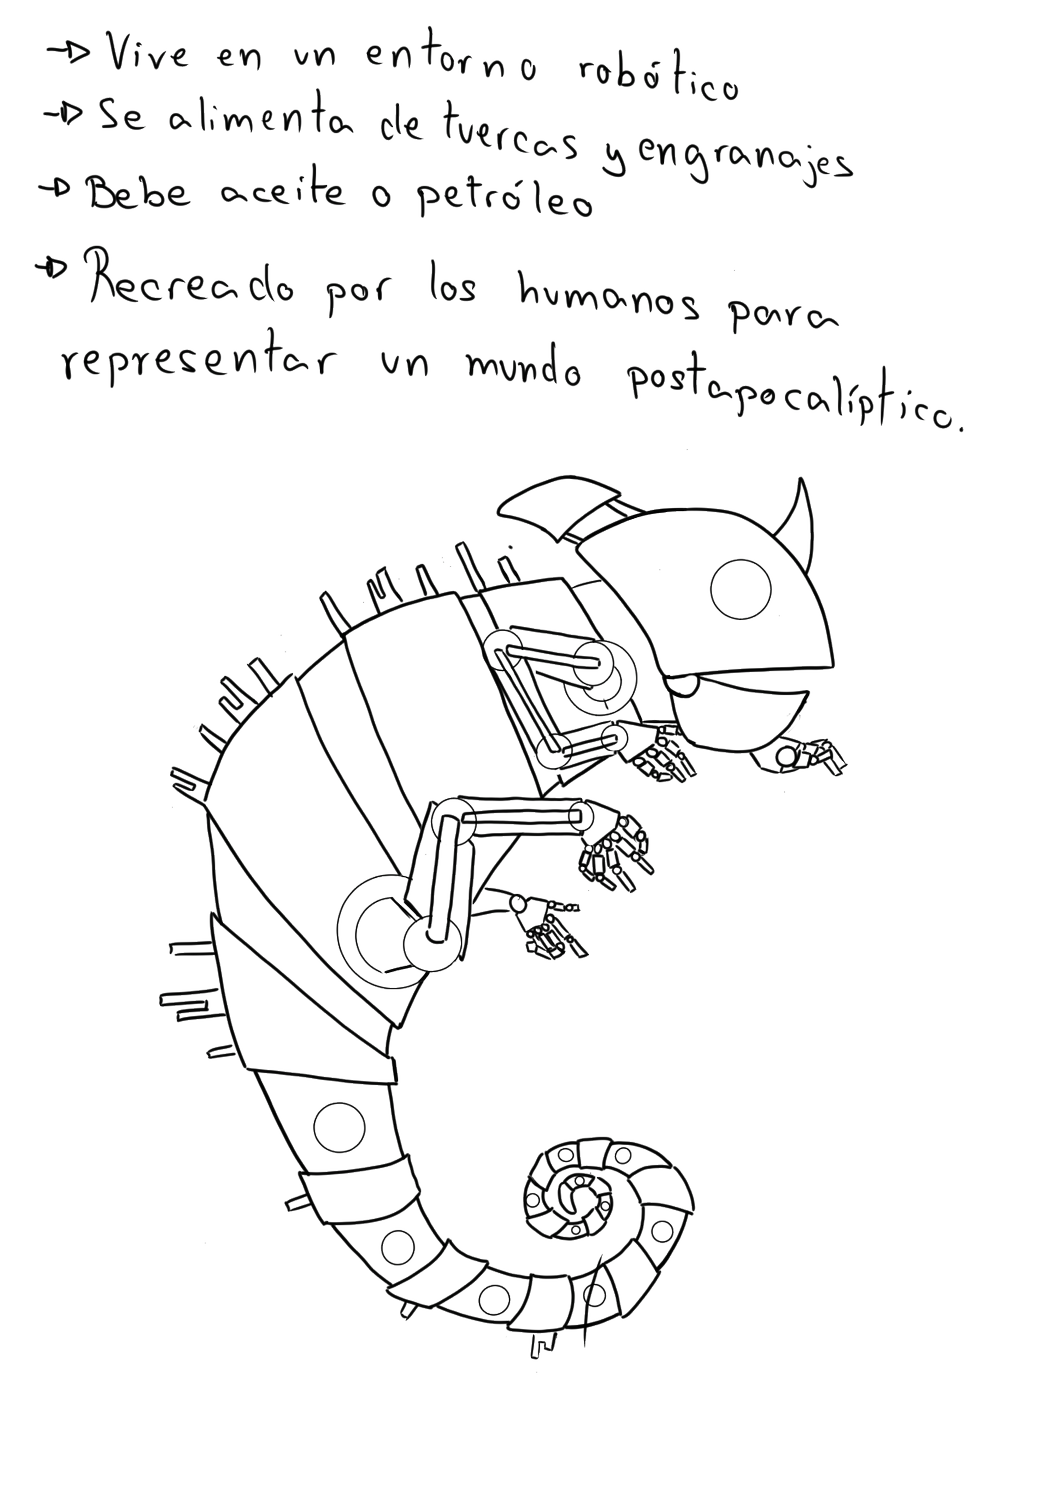 → Vive en un entorno robótico
→ Se alimenta de tuercas y engranajes
→ Bebe aceite o petróleo
→ Recreado por los humanos para
representar un mundo postapocalíptico.